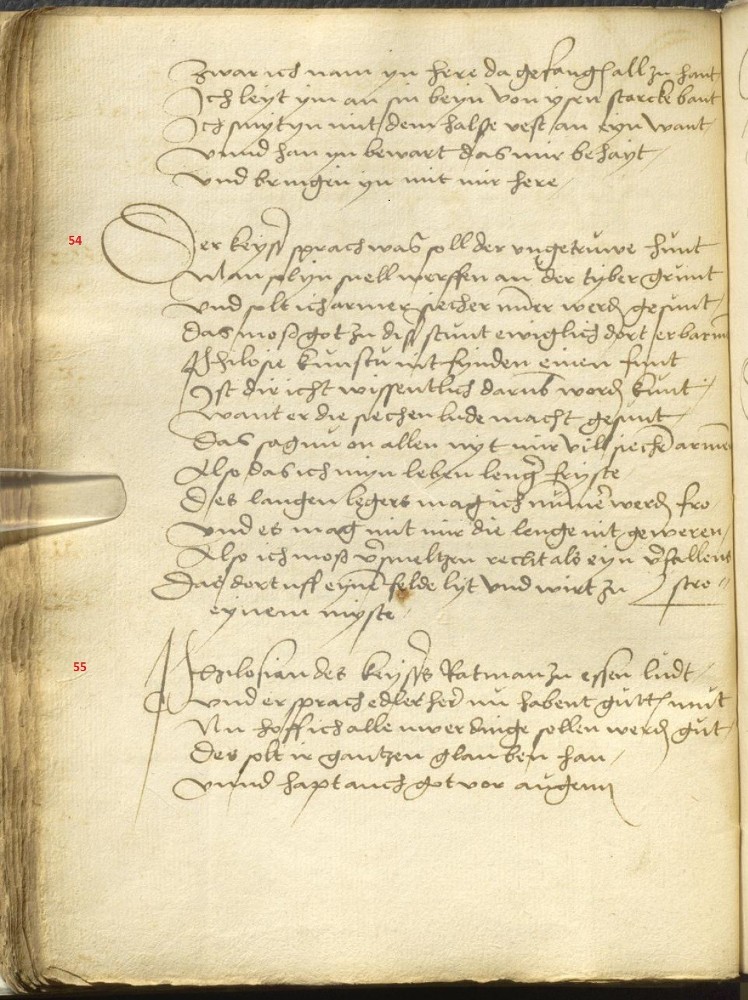 Zwar ich nam yn here da gefangh all zu hant
Ich leyt ym an sin beyn von ysen starcke bant
Ich smyt yn mit dem halse vest an eyn want
vnnd han yn bewart das mir behayt
vnd bringen yn mit mir here
54
Der keyser sprach was soll der vngetruwe hunt
Man sol yn snell werffen an der tyber grunt
vnd solt ich armer siecher nůer werden gesunt
Das moß got zu disser stunt ewiglich dort erbarm
Philosie kunstu nit fynden einen funt
Ist dir icht wissentlich darumb worden kunt
want er die siechen lude macht gesunt
Das sag nu on allen nyt mir vill siechen armen
Also das ich myn leben lenger fryste
Des langen legers mag ich nůmer werden fro
vnd es mag mit mir die lenge nit geweren
Also ich moß versmeltzen recht als eyn verfallens
Das dort uff eyme felde lyt vnd wirt zu stro
eynem myste
55
Philosian des keysers Ratman zu essen ludt
vnd er sprach edler her nu habent gutten mut
Nu hoff ich alle uwer dinge sollen werden gut
Des solt ir gantzen glauben han
vnnd hapt auch got vor augenn